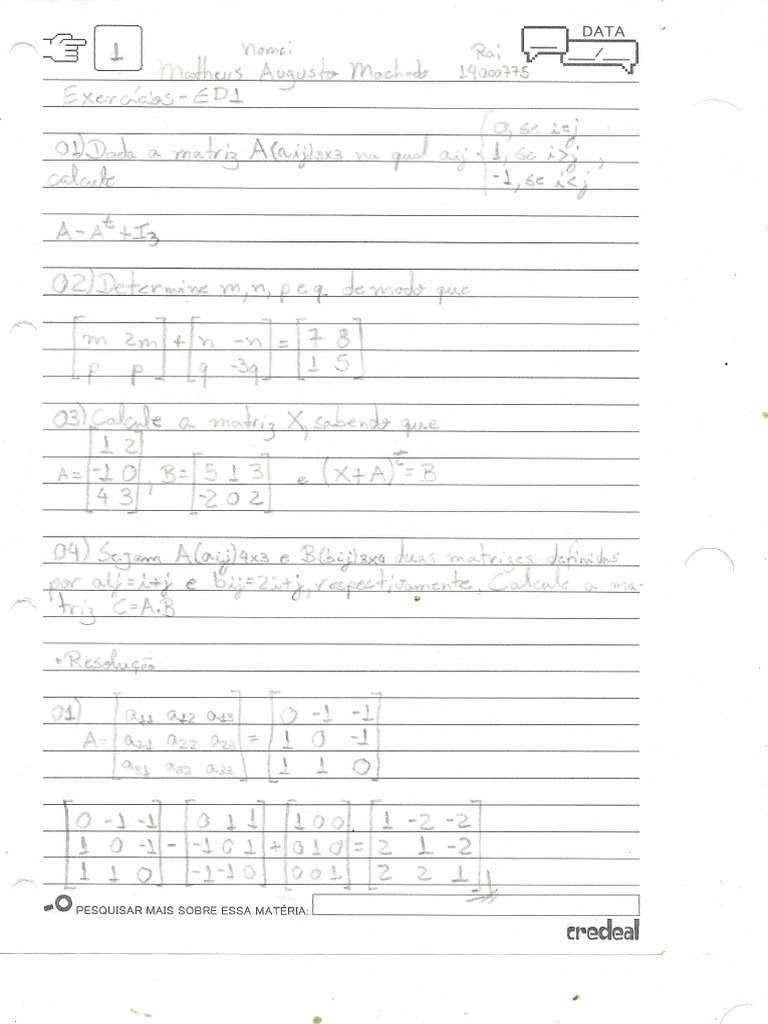 1
DATA
Nome: Ra:
Matheus Augusto Machado 14000775
Exercícios - ED1
0, se i=j
01) Dada a matriz A(aij)3x3 na qual aij = 1, se i>j ,
-1, se i<j
calcule
A - Aᵗ + I₃
02) Determine m, n, p e q de modo que
[m 2m] + [n -n] = [7 8]
[p p] [q -3q] [1 5]
03) Calcule a matriz X, sabendo que
[1 2]
A= [-1 0], B= [5 1 3] e (X+A)ᵗ = B
[4 3] [-2 0 2]
04) Sejam A(aij)4x3 e B(bij)3x4 duas matrizes definidas
por aij=i+j e bij=2i+j, respectivamente. Calcule a ma-
triz C=A.B
• Resolução
01) [a11 a12 a13] [0 -1 -1]
A= [a21 a22 a23] = [1 0 -1]
[a31 a32 a33] [1 1 0]
[0 -1 -1] [0 1 1] [1 0 0] [1 -2 -2]
[1 0 -1] - [-1 0 1] + [0 1 0] = [2 1 -2]
[1 1 0] [-1 -1 0] [0 0 1] [2 2 1]
PESQUISAR MAIS SOBRE ESSA MATÉRIA:
credeal